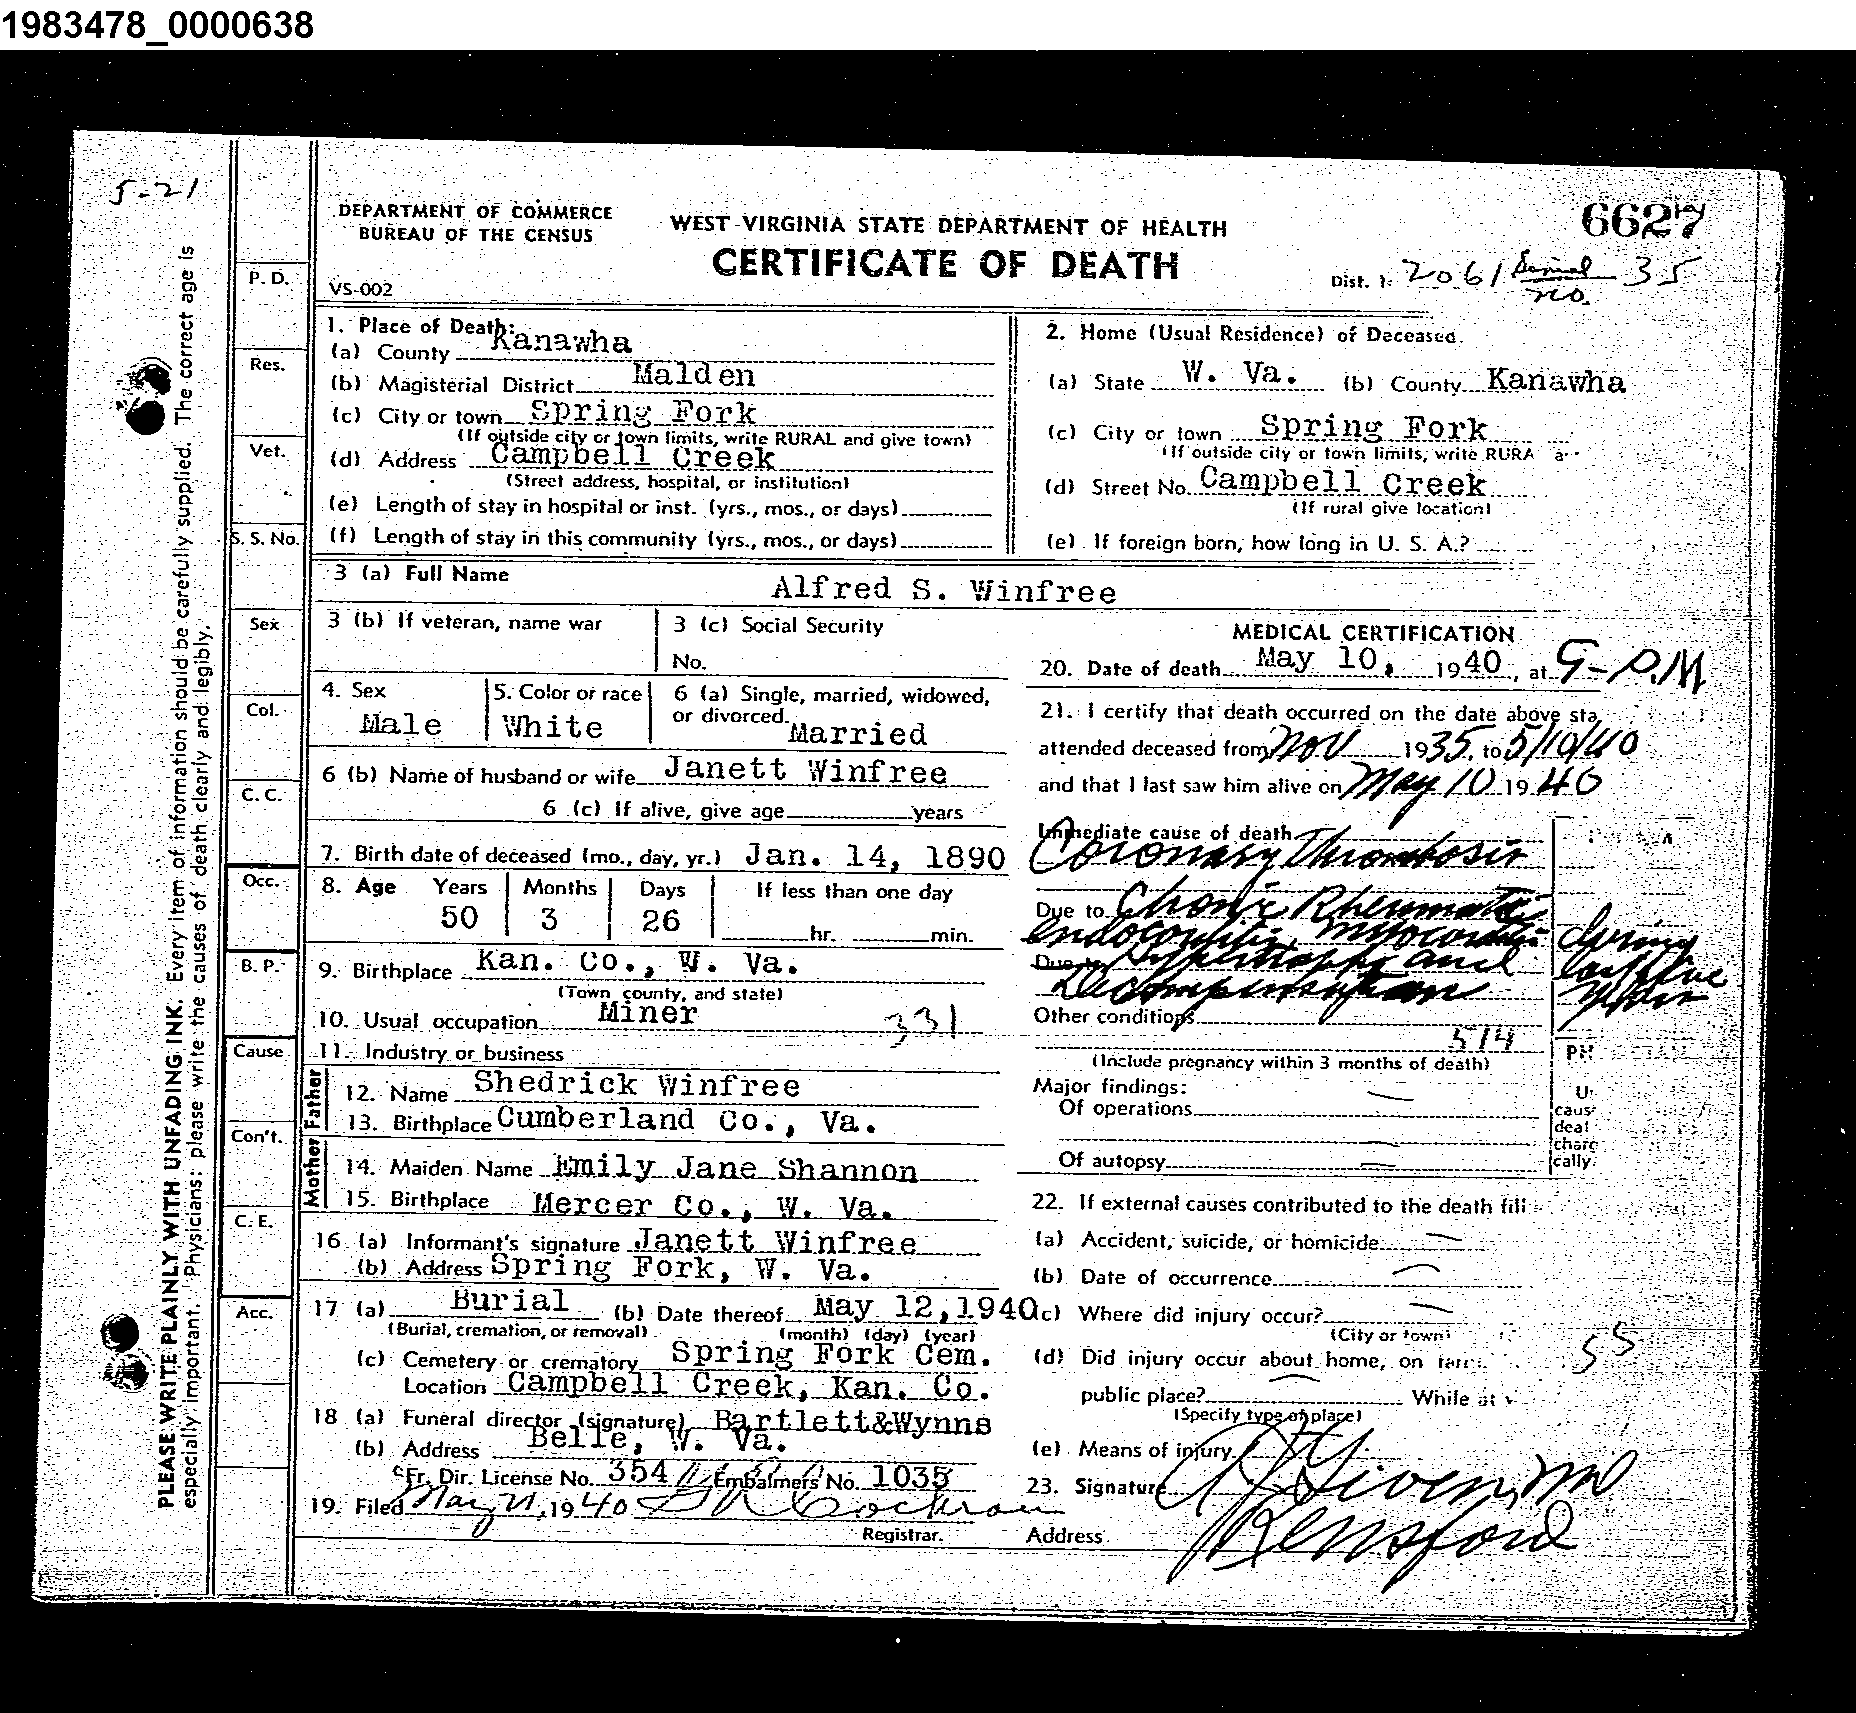 1983478_0000638
5-21
DEPARTMENT OF COMMERCE
BUREAU OF THE CENSUS
VS-002
WEST VIRGINIA STATE DEPARTMENT OF HEALTH
CERTIFICATE OF DEATH
6627
Dist. 2061 Serial no. 35
PLEASE WRITE PLAINLY WITH UNFADING INK. Every item of information should be carefully supplied. The correct age is
especially important. Physicians: please write the causes of death clearly and legibly.
P. D.
Res.
Vet.
S. S. No.
Sex
Col.
C. C.
Occ.
B. P.
Cause
Con't.
C. E.
Acc.
1. Place of Death:
(a) County Kanawha
(b) Magisterial District Malden
(c) City or town Spring Fork
(If outside city or town limits, write RURAL and give town)
(d) Address Campbell Creek
(Street address, hospital, or institution)
(e) Length of stay in hospital or inst. (yrs., mos., or days)
(f) Length of stay in this community (yrs., mos., or days)
2. Home (Usual Residence) of Deceased.
(a) State W. Va. (b) County Kanawha
(c) City or town Spring Fork
(If outside city or town limits, write RURA
(d) Street No. Campbell Creek
(If rural give location)
(e) If foreign born, how long in U. S. A.?
3 (a) Full Name Alfred S. Winfree
3 (b) If veteran, name war
3 (c) Social Security
No.
4. Sex Male
5. Color or race White
6 (a) Single, married, widowed,
or divorced. Married
6 (b) Name of husband or wife Janett Winfree
6 (c) If alive, give age years
7. Birth date of deceased (mo., day, yr.) Jan. 14, 1890
8. Age Years Months Days If less than one day
50 3 26 hr. min.
9. Birthplace Kan. Co., W. Va.
(Town county, and state)
10. Usual occupation Miner 331
11. Industry or business
Father
12. Name Shedrick Winfree
13. Birthplace Cumberland Co., Va.
Mother
14. Maiden Name Emily Jane Shannon
15. Birthplace Mercer Co., W. Va.
16 (a) Informant's signature Janett Winfree
(b) Address Spring Fork, W. Va.
17 (a) Burial (b) Date thereof May 12,1940
(Burial, cremation, or removal) (month) (day) (year)
(c) Cemetery or crematory Spring Fork Cem.
Location Campbell Creek, Kan. Co.
18 (a) Funeral director (signature) Bartlett&Wynne
(b) Address Belle, W. Va.
Fr. Dir. License No. 354 Embalmers No. 1035
19. Filed May 21, 1940 Cochran
Registrar.
MEDICAL CERTIFICATION
20. Date of death May 10, 1940, at 9-P.M
21. I certify that death occurred on the date above sta
attended deceased from Nov 1935, to 5/10/40
and that I last saw him alive on May 10 1940
Immediate cause of death
Coronary Thrombosis
Due to Chronic Rheumatic
Endocarditis, Myocarditis
Due to Hypertrophy and
Decompensation
during last five years
Other conditions
514
(Include pregnancy within 3 months of death)
PH
Major findings:
Of operations
Of autopsy
U
caus
deat
charg
cally.
22. If external causes contributed to the death fill
(a) Accident, suicide, or homicide
(b) Date of occurrence
(c) Where did injury occur?
(City or town)
(d) Did injury occur about home, on farm
55
public place? While at w
(Specify type of place)
(e) Means of injury
23. Signature Given, MD
Address Rensford